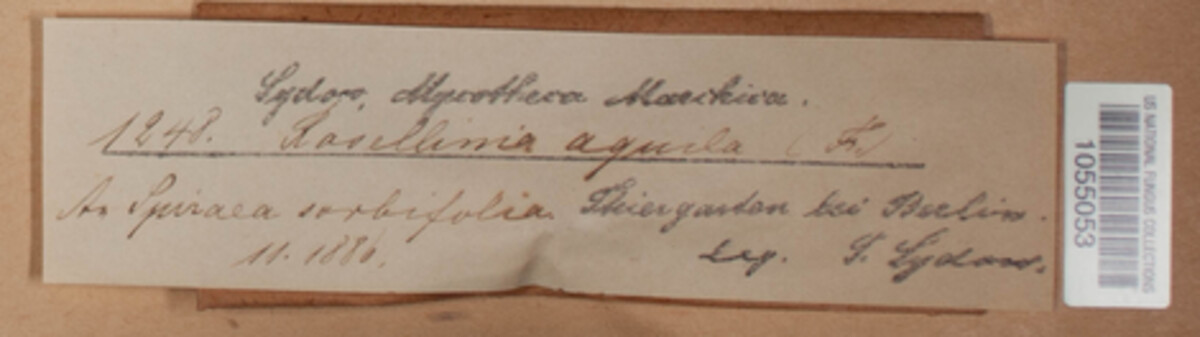 Sydow, Mycotheca Marchica.
1248. Rosellinia aquila (Fr.)
An Spiraea sorbifolia. Thiergarten bei Berlin.
11. 1886. Leg. P. Sydow.
US NATIONAL FUNGUS COLLECTIONS
1055053